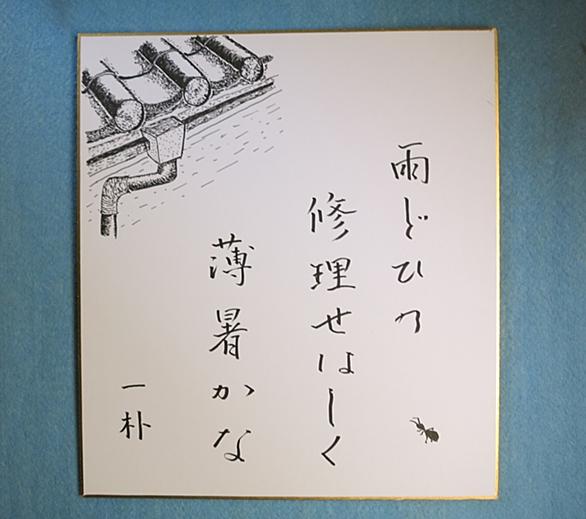 雨どひの
修理せはしく
薄暑かな
一朴